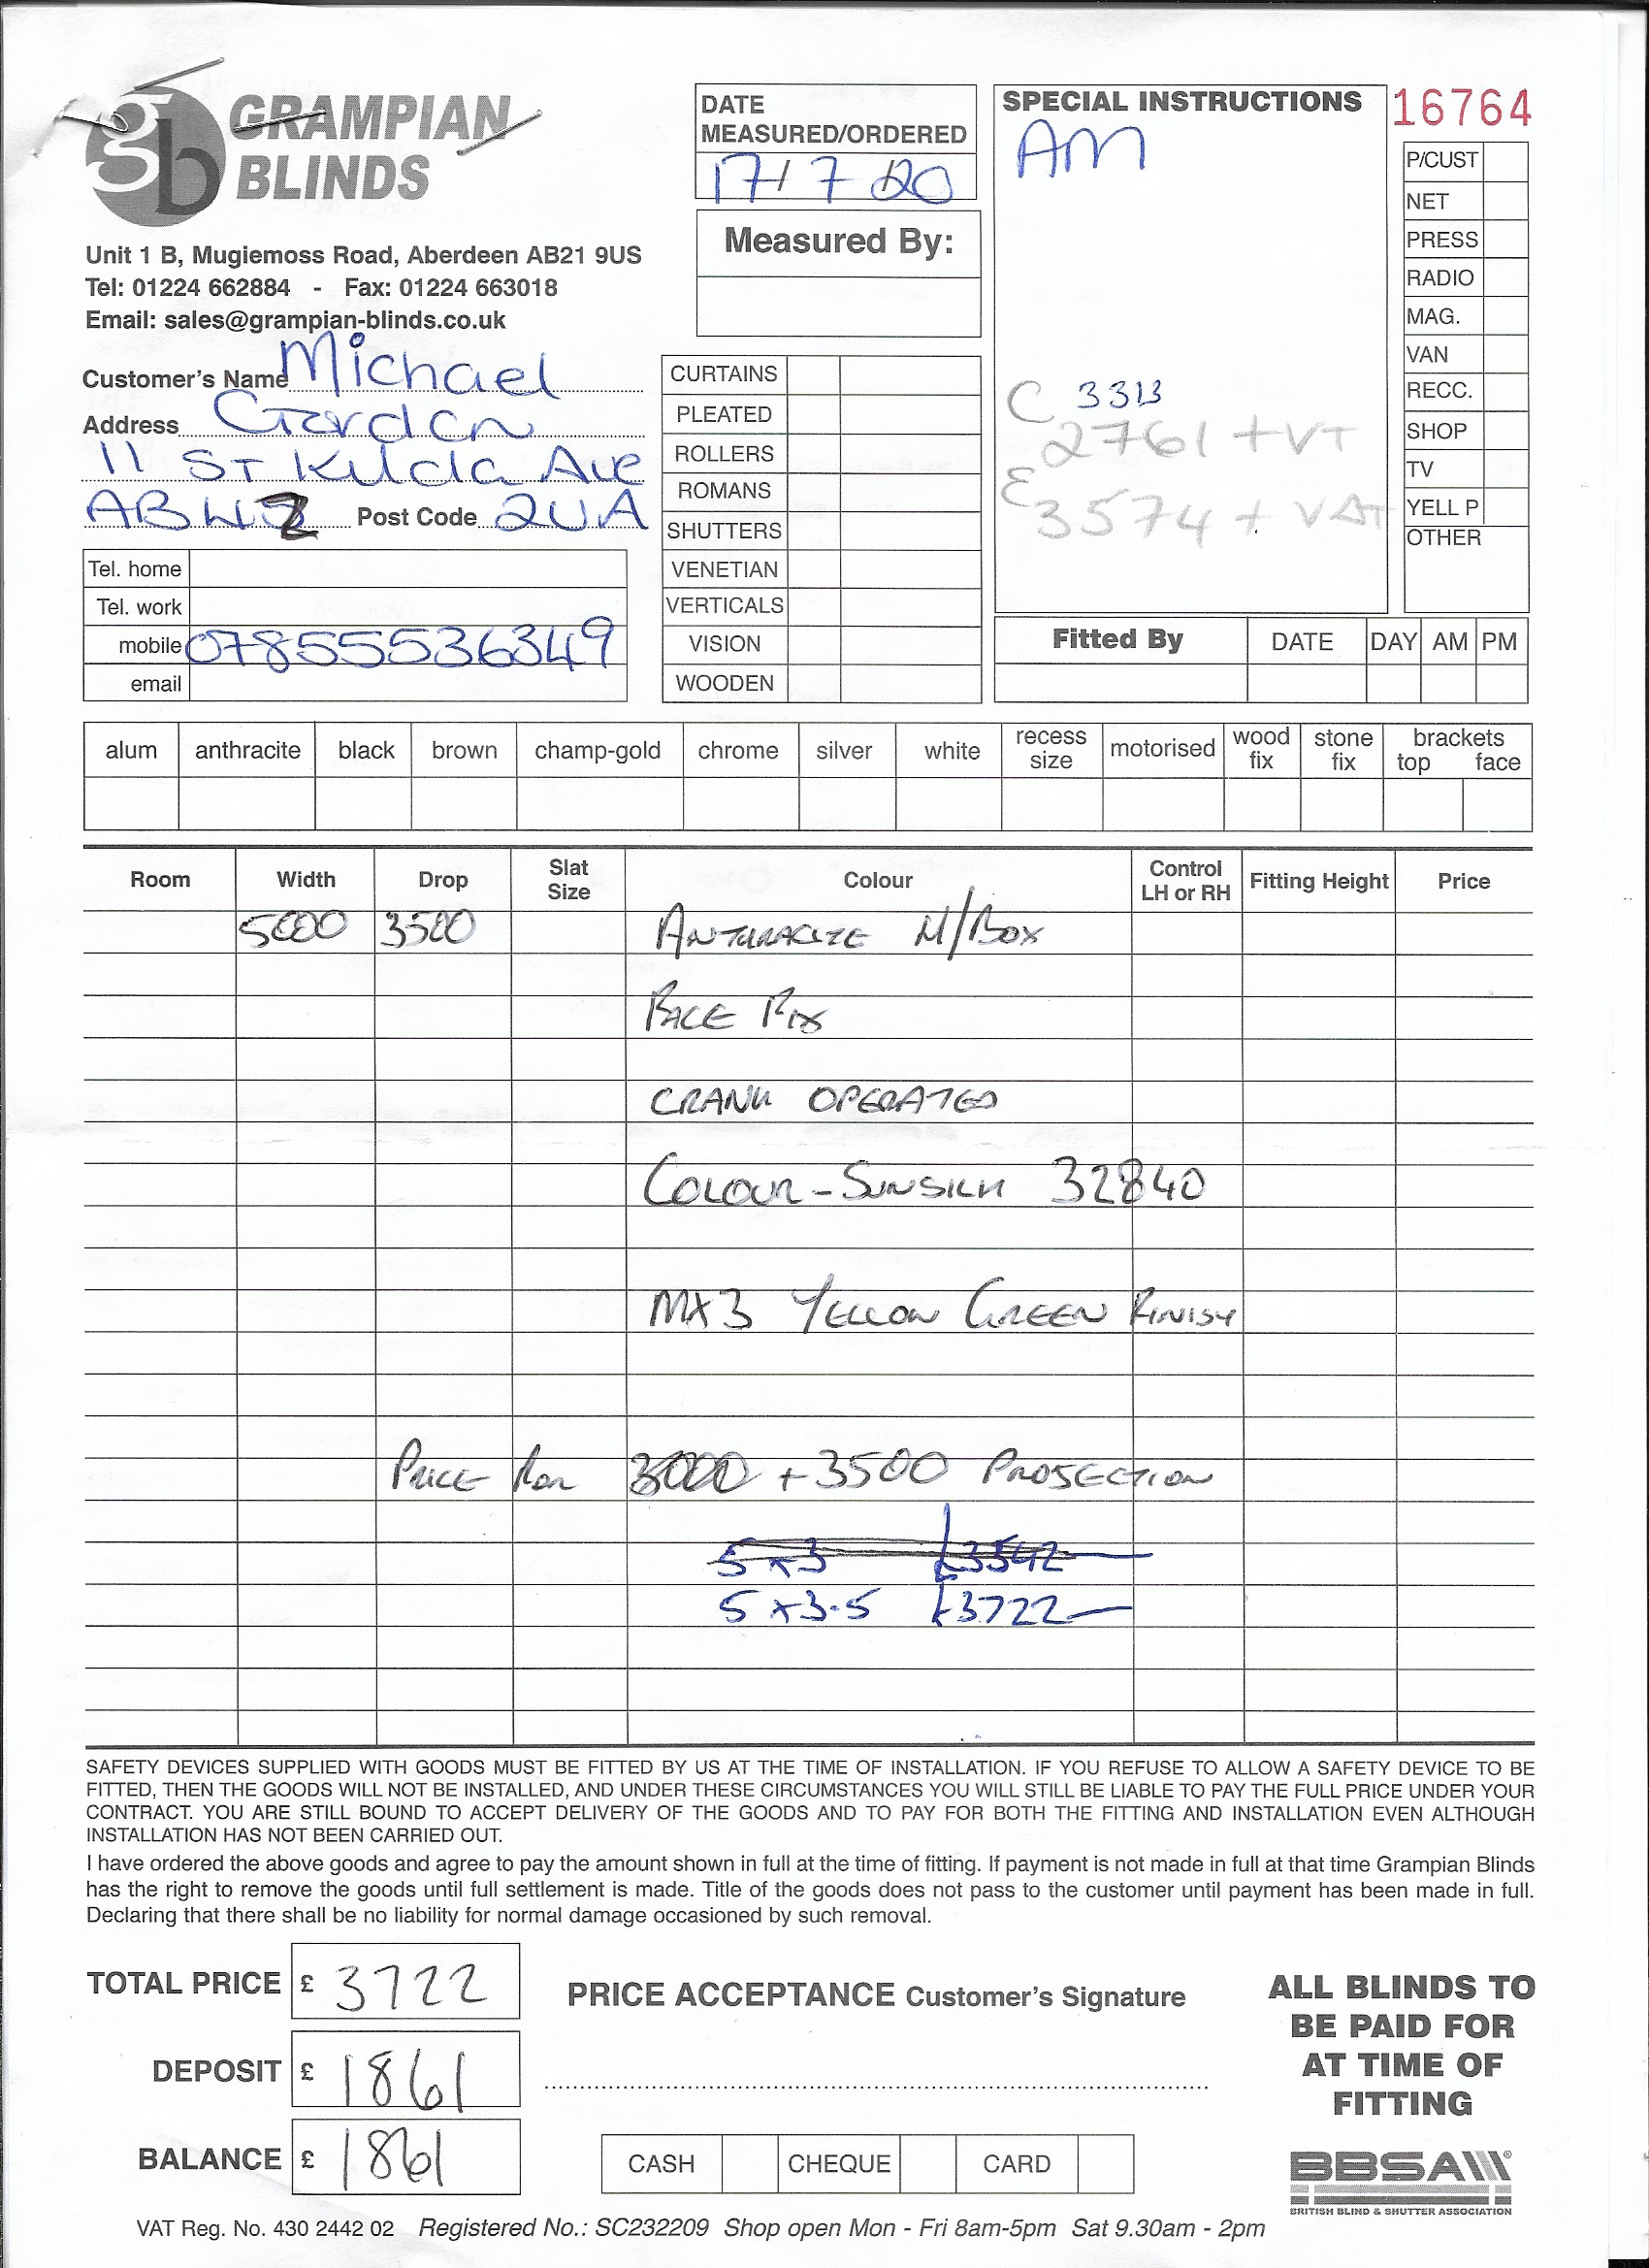 gb GRAMPIAN
BLINDS
Unit 1 B, Mugiemoss Road, Aberdeen AB21 9US
Tel: 01224 662884 - Fax: 01224 663018
Email: sales@grampian-blinds.co.uk
Customer's Name Michael
Address Gordon
11 St Kilda Ave
Post Code 2UA
Tel. home
Tel. work
mobile 07855536349
email
DATE
MEASURED/ORDERED
17/7/20
Measured By:
CURTAINS
PLEATED
ROLLERS
ROMANS
SHUTTERS
VENETIAN
VERTICALS
VISION
WOODEN
SPECIAL INSTRUCTIONS
AM
C 3313
2761 + VT
E
3574 + VAT
16764
P/CUST
NET
PRESS
RADIO
MAG.
VAN
RECC.
SHOP
TV
YELL P
OTHER
Fitted By DATE DAY AM PM
alum anthracite black brown champ-gold chrome silver white recess size motorised wood fix stone fix brackets top face
Room Width Drop Slat Size Colour Control LH or RH Fitting Height Price
5000 3500 ANTHRACITE M/BOX
FACE FIX
CRANK OPERATED
COLOUR - SUNSILK 32840
MX3 YELLOW GREEN FINISH
PRICE FOR 3000 + 3500 PROJECTION
5 x 3 £3542
5 x 3.5 £3722
SAFETY DEVICES SUPPLIED WITH GOODS MUST BE FITTED BY US AT THE TIME OF INSTALLATION. IF YOU REFUSE TO ALLOW A SAFETY DEVICE TO BE
FITTED, THEN THE GOODS WILL NOT BE INSTALLED, AND UNDER THESE CIRCUMSTANCES YOU WILL STILL BE LIABLE TO PAY THE FULL PRICE UNDER YOUR
CONTRACT. YOU ARE STILL BOUND TO ACCEPT DELIVERY OF THE GOODS AND TO PAY FOR BOTH THE FITTING AND INSTALLATION EVEN ALTHOUGH
INSTALLATION HAS NOT BEEN CARRIED OUT.
I have ordered the above goods and agree to pay the amount shown in full at the time of fitting. If payment is not made in full at that time Grampian Blinds
has the right to remove the goods until full settlement is made. Title of the goods does not pass to the customer until payment has been made in full.
Declaring that there shall be no liability for normal damage occasioned by such removal.
TOTAL PRICE £ 3722
DEPOSIT £ 1861
BALANCE £ 1861
PRICE ACCEPTANCE Customer's Signature
CASH CHEQUE CARD
ALL BLINDS TO
BE PAID FOR
AT TIME OF
FITTING
BBSA
BRITISH BLIND & SHUTTER ASSOCIATION
VAT Reg. No. 430 2442 02 Registered No.: SC232209 Shop open Mon - Fri 8am-5pm Sat 9.30am - 2pm